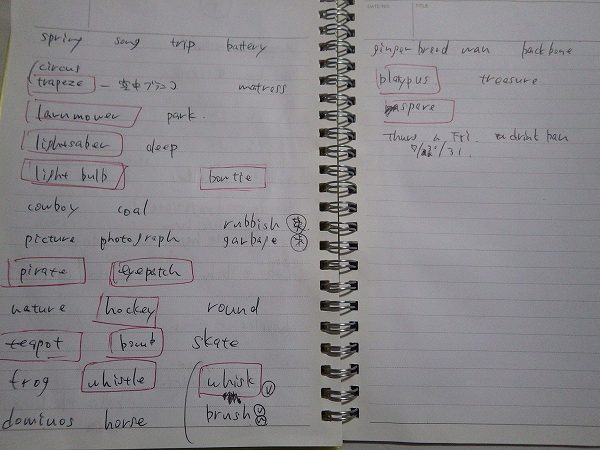 spring song trip battery
(circus
trapeze - 空中ブランコ matress
lawnmower park.
lightsaber deep
light bulb
cowboy coal
rubbish 英
picture photograph garbage 米
pirate eyepatch
nature hockey round
teapot skate
frog whistle whisk v
dominos horse brush v
DATE/NO. TITLE
ginger bread man backbone
platypus treasure
Thurs Fri.